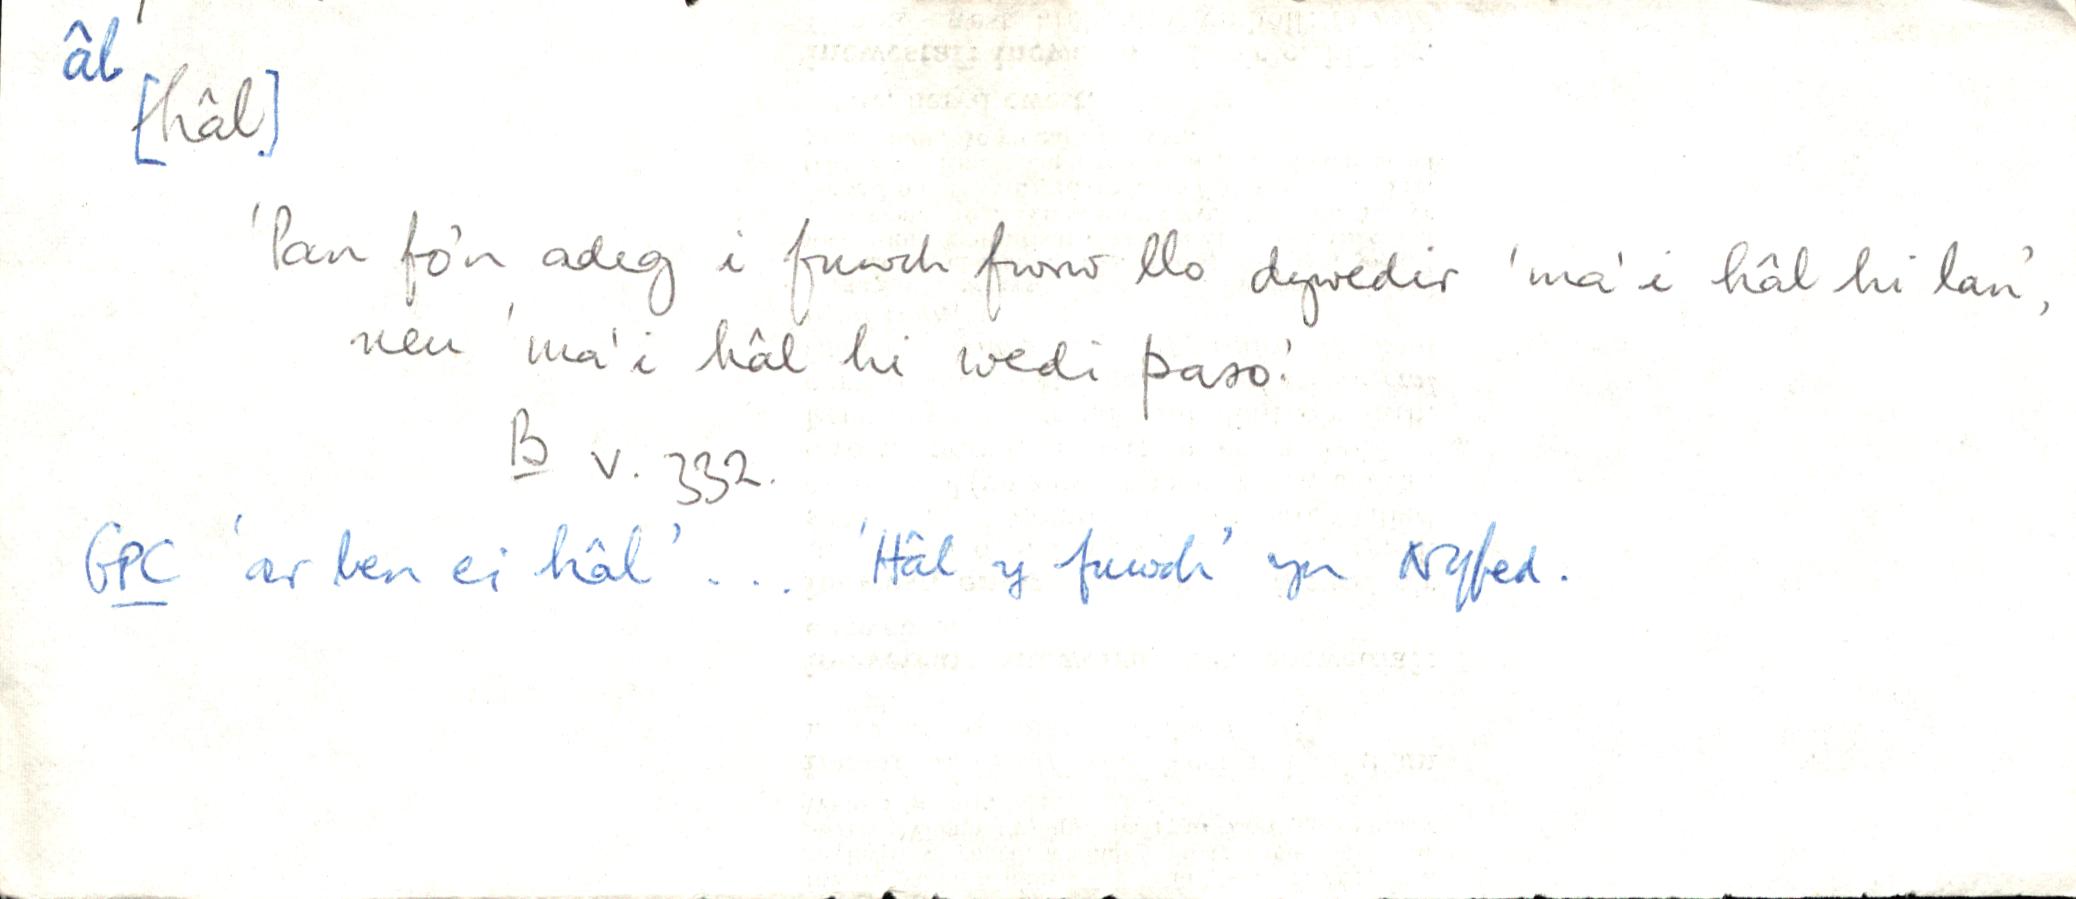 âl
[hâl]
'Pan fo'n adeg i fuwch fwrw llo dywedir 'ma'i hâl hi lan',
neu 'ma'i hâl hi wedi paso.'
B v. 332.
GPC 'ar ben ei hâl' . . . 'Hâl y fuwch' yn Nyfed.